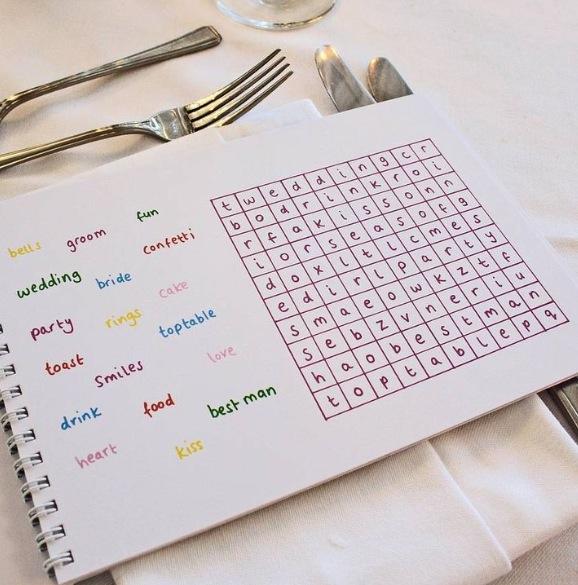 fun
bells groom confetti
wedding bride
cake
party rings toptable
toast smiles love
drink food best man
heart kiss
t w e d d i n g c r
b o d r i n k r o i
r f a k i s s o n n
i o r s e a s o f g
d o x l t l c m e s
e d i r l p a r t y
s m a e o w k z t f
s e b z v n e r i u
h a o b e s t m a n
t o p t a b l e p q